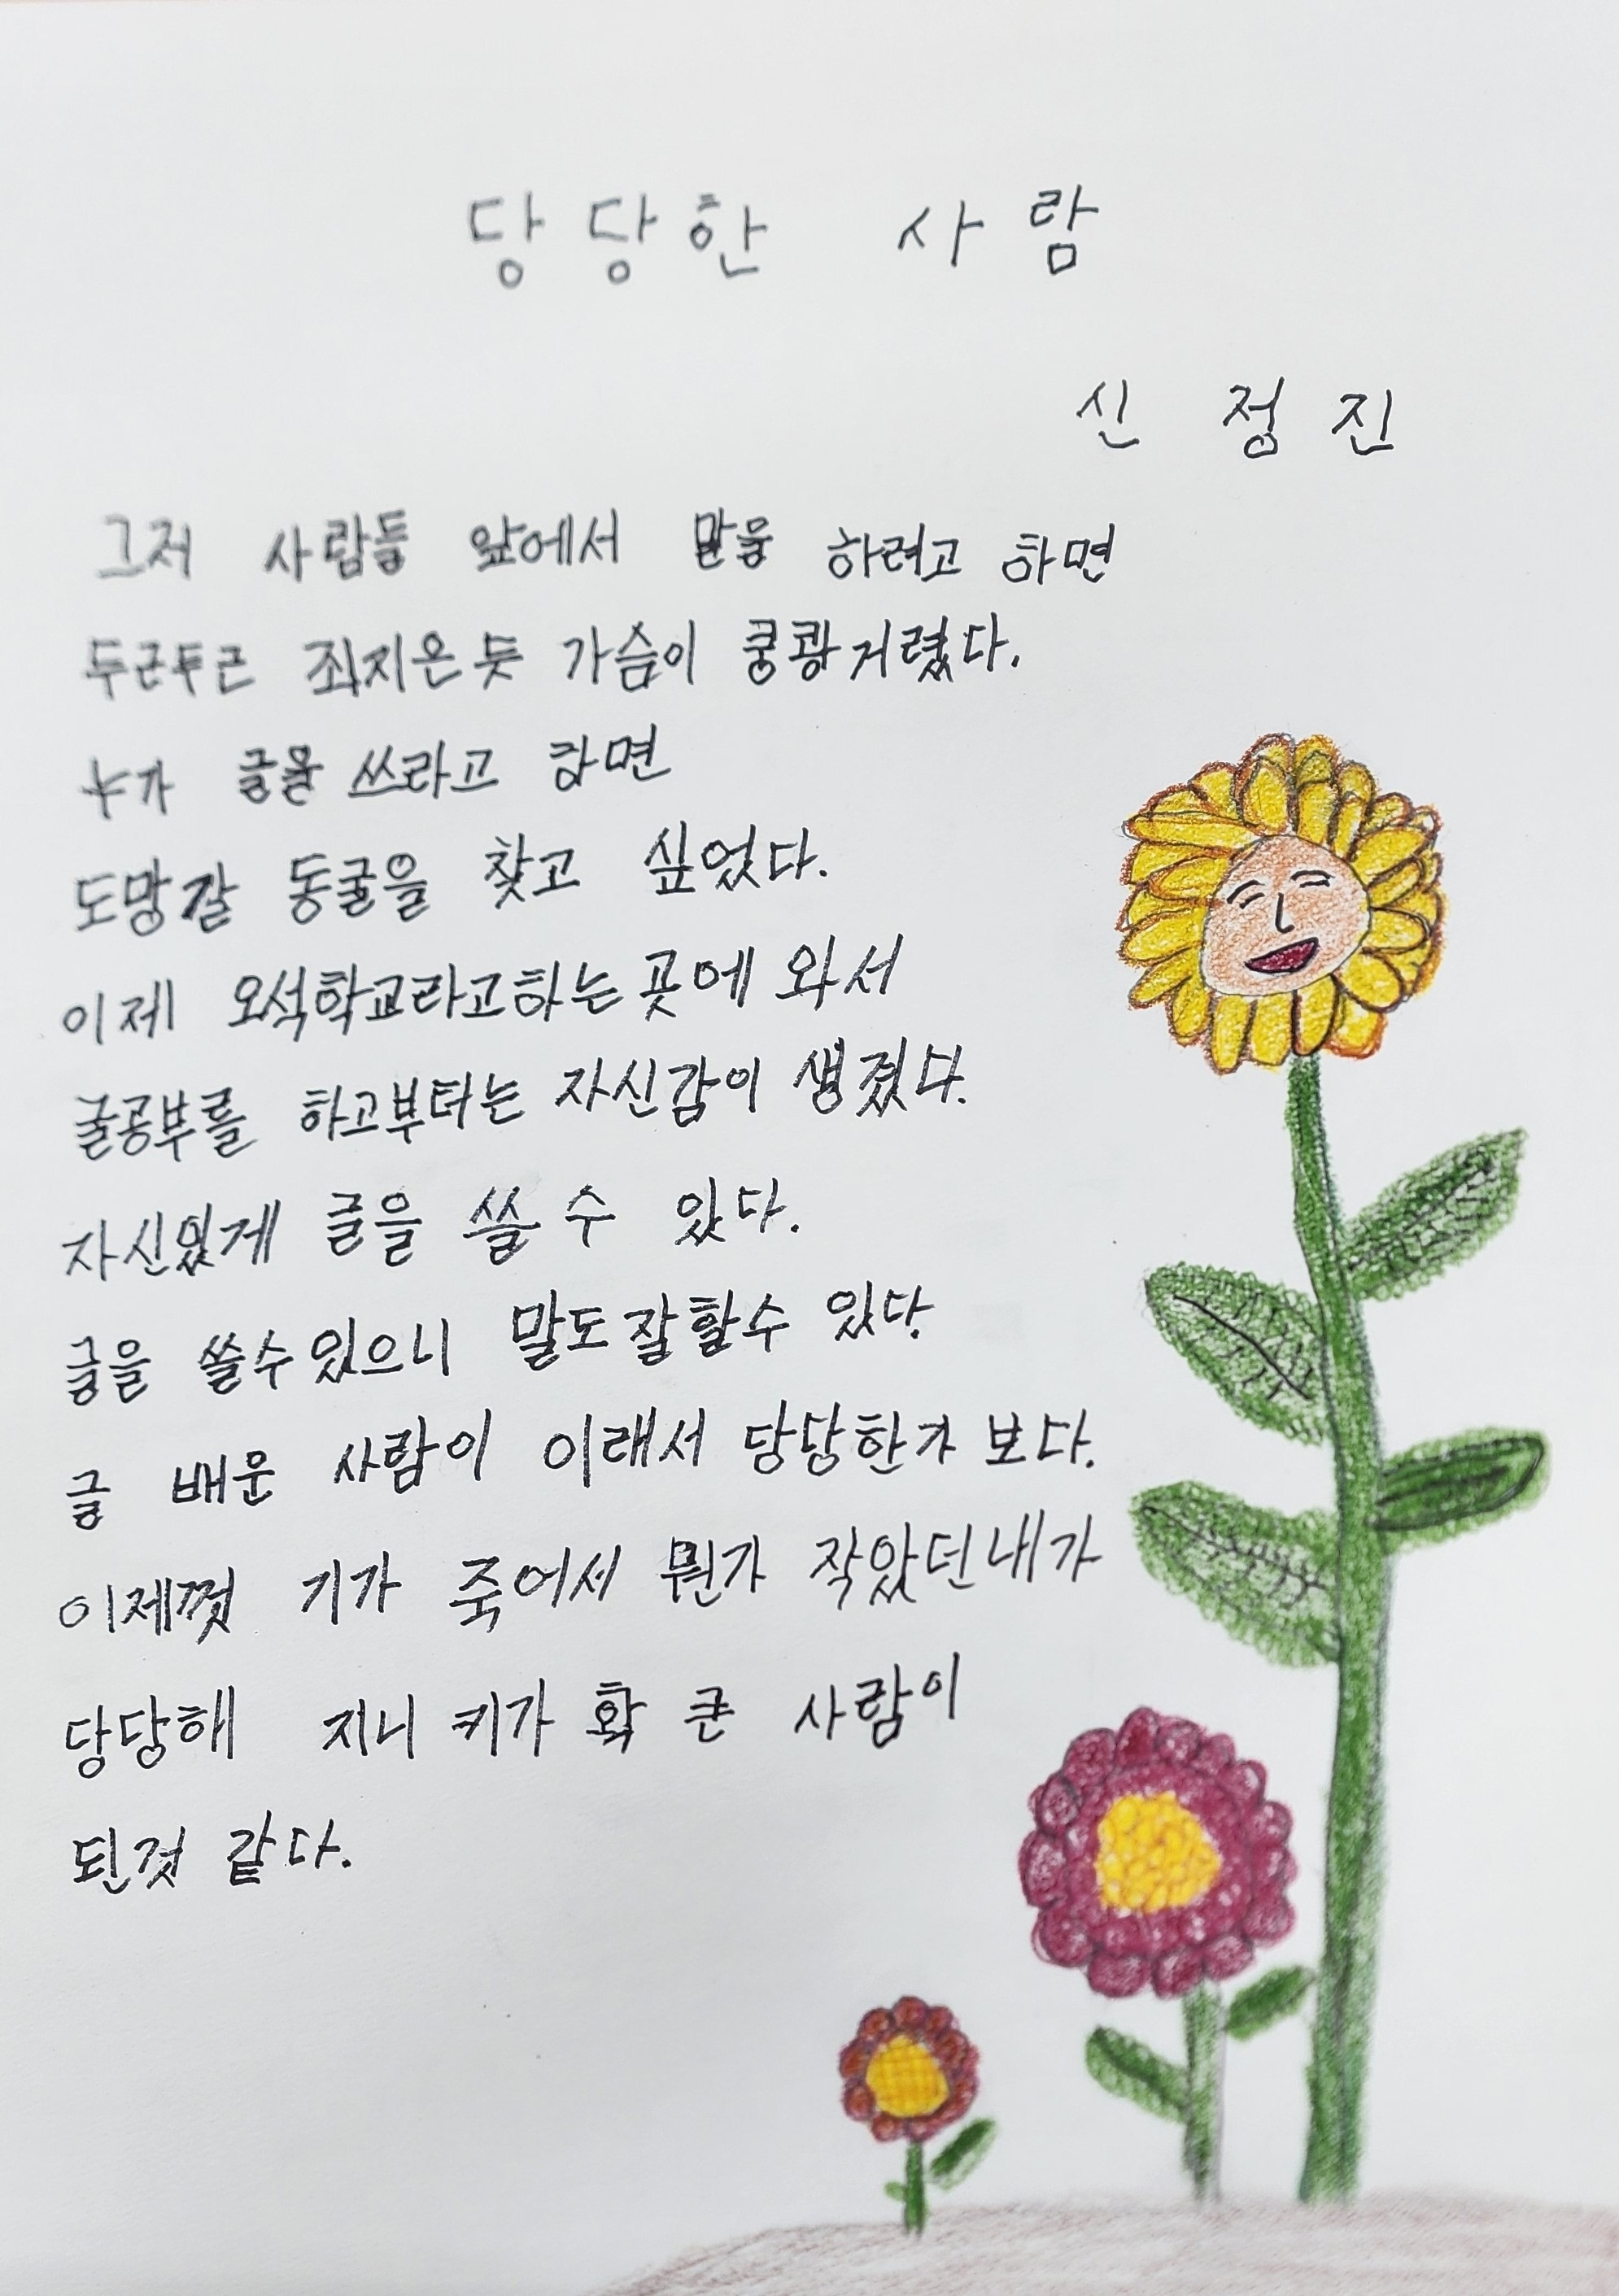 당당한 사람
신 정진
그저 사람들 앞에서 말을 하려고 하면
두근두근 죄지은듯 가슴이 쿵쾅거렸다.
누가 글을 쓰라고 하면
도망갈 동굴을 찾고 싶었다.
이제 오석학교라고하는 곳에 와서
글공부를 하고부터는 자신감이 생겼다.
자신있게 글을 쓸 수 있다.
글을 쓸수있으니 말도잘할수 있다.
글 배운 사람이 이래서 당당한가 보다.
이제껏 기가 죽어서 뭔가 작았던내가
당당해 지니 키가 확 큰 사람이
된것 같다.